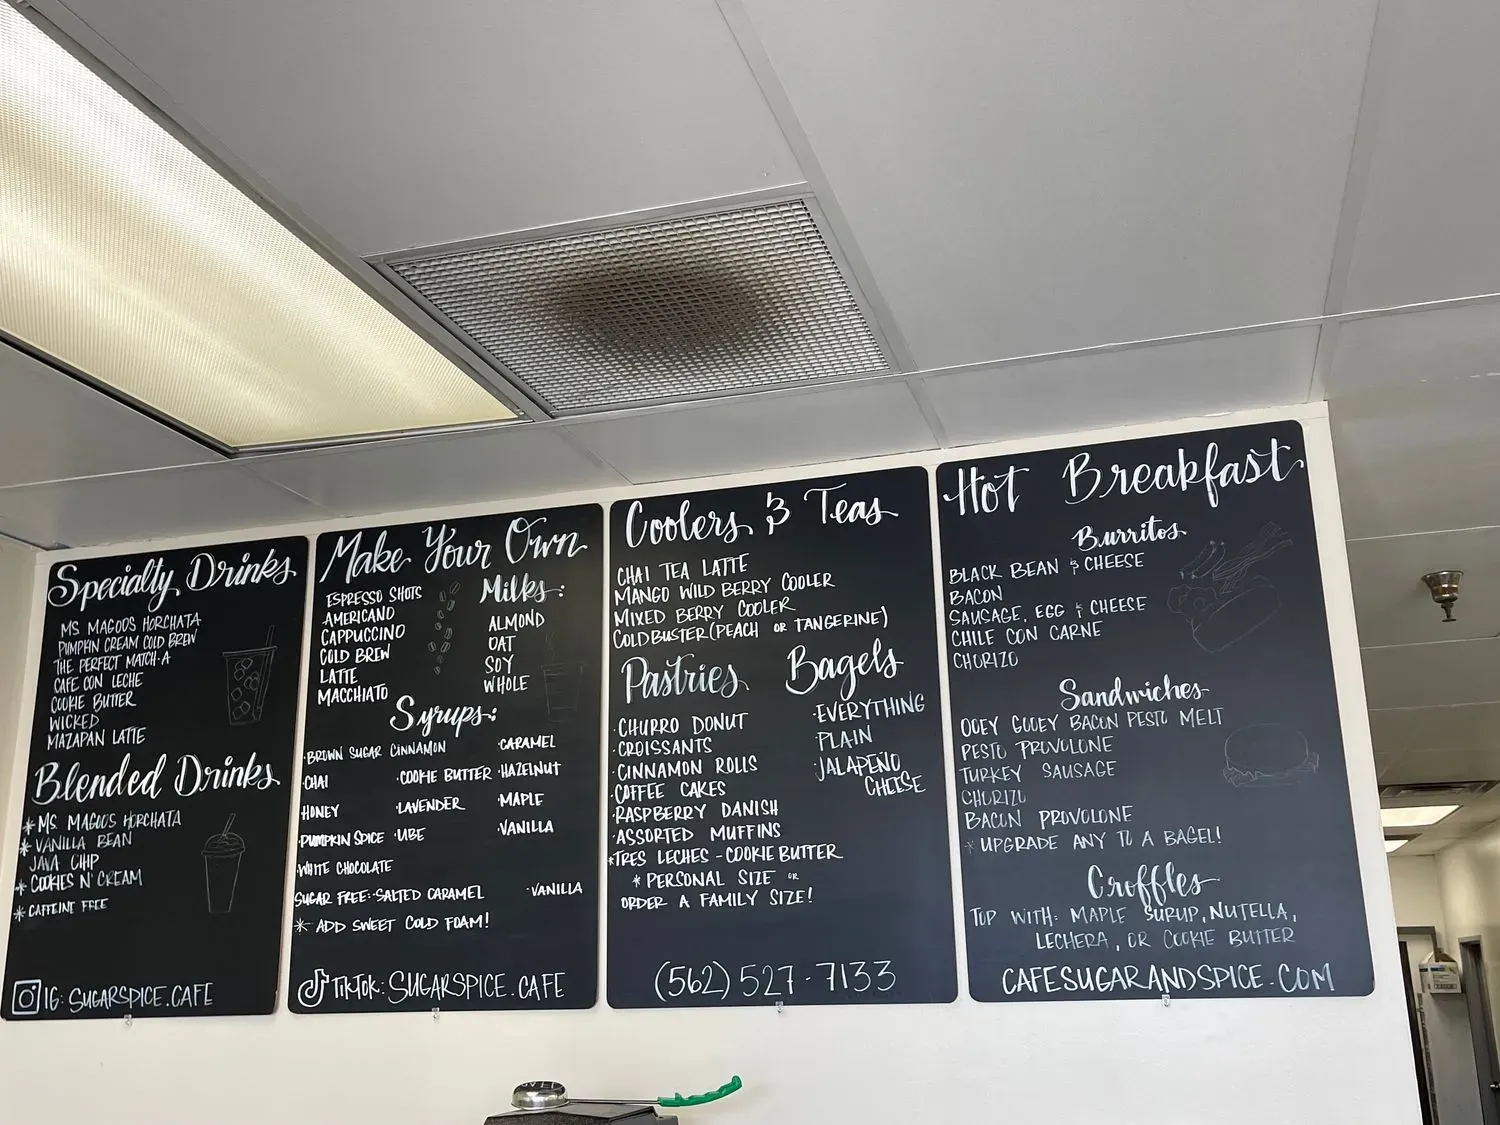 Specialty Drinks
MS. MAGOOS HORCHATA
PUMPKIN CREAM COLD BREW
THE PERFECT MATCH·A
CAFE CON LECHE
COOKIE BUTTER
WICKED
MAZAPAN LATTE
Blended Drinks
* MS. MAGOOS HORCHATA
* VANILLA BEAN
JAVA CHIP
* COOKIES N' CREAM
* CAFFEINE FREE
IG: SUGARSPICE.CAFE
Make Your Own
ESPRESSO SHOTS
AMERICANO
CAPPUCCINO
COLD BREW
LATTE
MACCHIATO
Milks:
ALMOND
OAT
SOY
WHOLE
Syrups:
·BROWN SUGAR CINNAMON ·CARAMEL
·CHAI ·COOKIE BUTTER ·HAZELNUT
·HONEY ·LAVENDER ·MAPLE
·PUMPKIN SPICE ·UBE ·VANILLA
·WHITE CHOCOLATE
SUGAR FREE: ·SALTED CARAMEL ·VANILLA
* ADD SWEET COLD FOAM!
TIKTOK: SUGARSPICE.CAFE
Coolers & Teas
CHAI TEA LATTE
MANGO WILD BERRY COOLER
MIXED BERRY COOLER
COLDBUSTER (PEACH OR TANGERINE)
Pastries
·CHURRO DONUT
·CROISSANTS
·CINNAMON ROLLS
·COFFEE CAKES
·RASPBERRY DANISH
·ASSORTED MUFFINS
*TRES LECHES - COOKIE BUTTER
* PERSONAL SIZE OR
ORDER A FAMILY SIZE!
Bagels
·EVERYTHING
·PLAIN
·JALAPEÑO
CHEESE
(562) 527-7133
Hot Breakfast
Burritos
BLACK BEAN & CHEESE
BACON
SAUSAGE, EGG & CHEESE
CHILE CON CARNE
CHORIZO
Sandwiches
OOEY GOOEY BACON PESTO MELT
PESTO PROVOLONE
TURKEY SAUSAGE
CHORIZO
BACON PROVOLONE
* UPGRADE ANY TO A BAGEL!
Croffles
TOP WITH: MAPLE SURUP, NUTELLA,
LECHERA, OR COOKIE BUTTER
CAFESUGARANDSPICE.COM